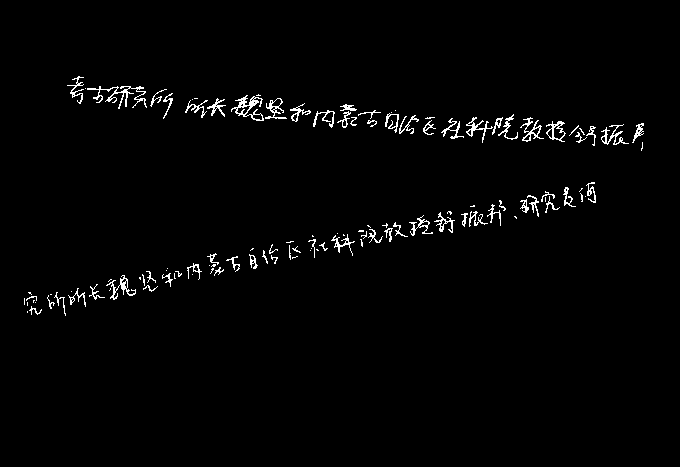 考古研究所所长魏坚和内蒙古自治区社科院教授舒振
究所所长魏坚和内蒙古自治区社科院教授舒振邦、研究员何